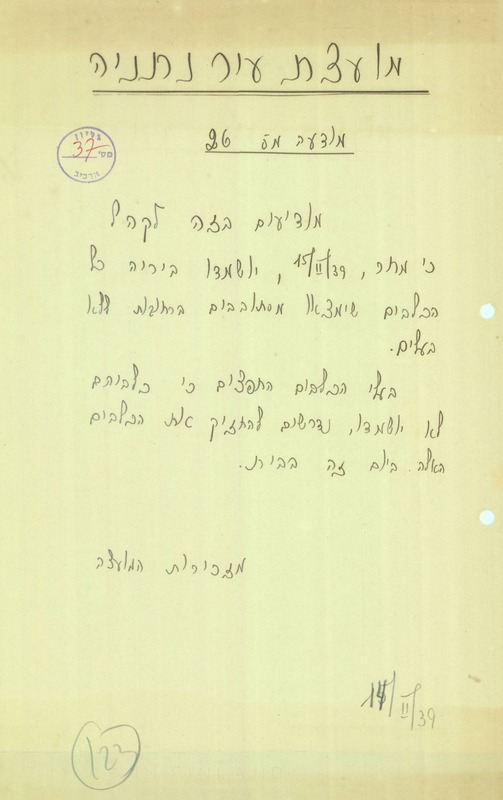 מועצת עיר נתניה
מודעה מס 26
ארכיון
מס' 37
ארכיב
מודיעים בזה לקהל
כי מחר, 15/II/39, יושמדו ביריה כל
הכלבים שימצאו מסתובבים ברחובות ללא
בעלים.
בעלי הכלבים החפצים כי כלביהם
לא יושמדו, נדרשים להחזיק את הכלבים
האלה ביום זה בבית.
מזכירות המועצה
14/II/39
123